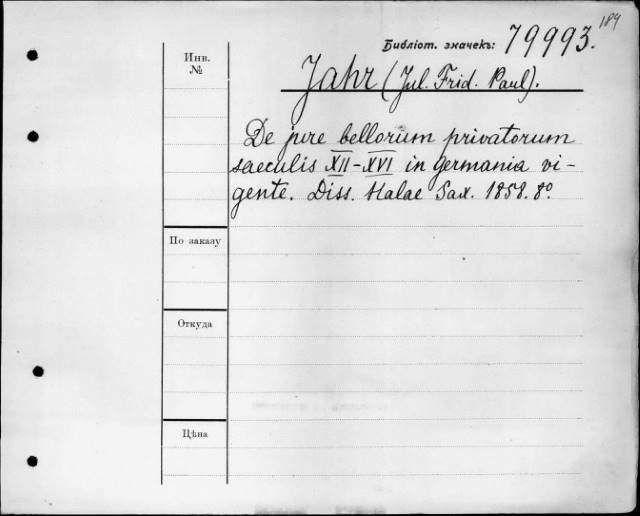 184
Библіот. значекъ: 79993.
Инв.
№
Jahr (Jul. Frid. Paul).
De jure bellorum privatorum
saeculis XII-XVI in germania vi-
gente. Diss. Halae Sax. 1858. 8º.
По заказу
Откуда
Цѣна